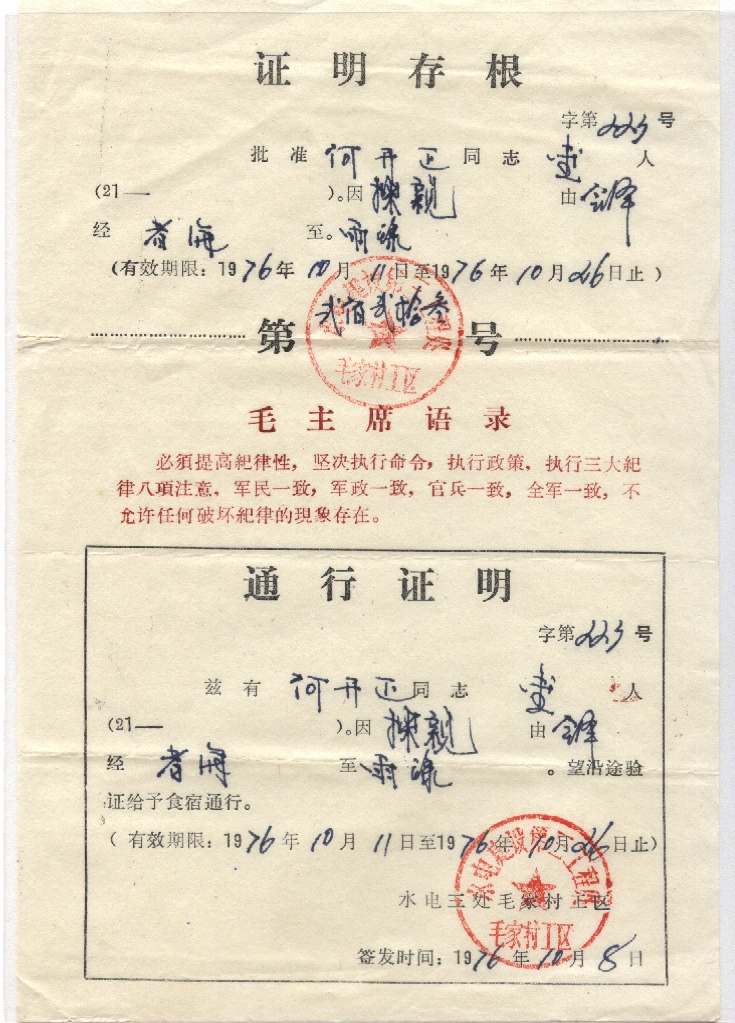 证明存根
字第223号
批准何开正同志壹人
(21— )。因探亲由会泽
经者海至。
(有效期限：1976年10月11日至1976年10月26日止)
第贰佰贰拾叁号
毛家村工区
毛主席语录
必須提高紀律性，坚决执行命令，执行政策，执行三大紀
律八項注意，军民一致，军政一致，官兵一致，全军一致，不
允许任何破坏紀律的現象存在。
通行证明
字第223号
兹有何开正同志壹人
(21— )。因探亲由会泽
经者海至。望沿途验
证给予食宿通行。
(有效期限：1976年10月11日至1976年10月26日止)
水电建设第三工程处
水电三处毛家村工区
毛家村工区
签发时间：1976年10月8日